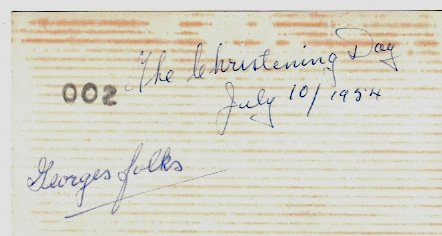 The Christening Day
002
July 10/1954
Georges folks